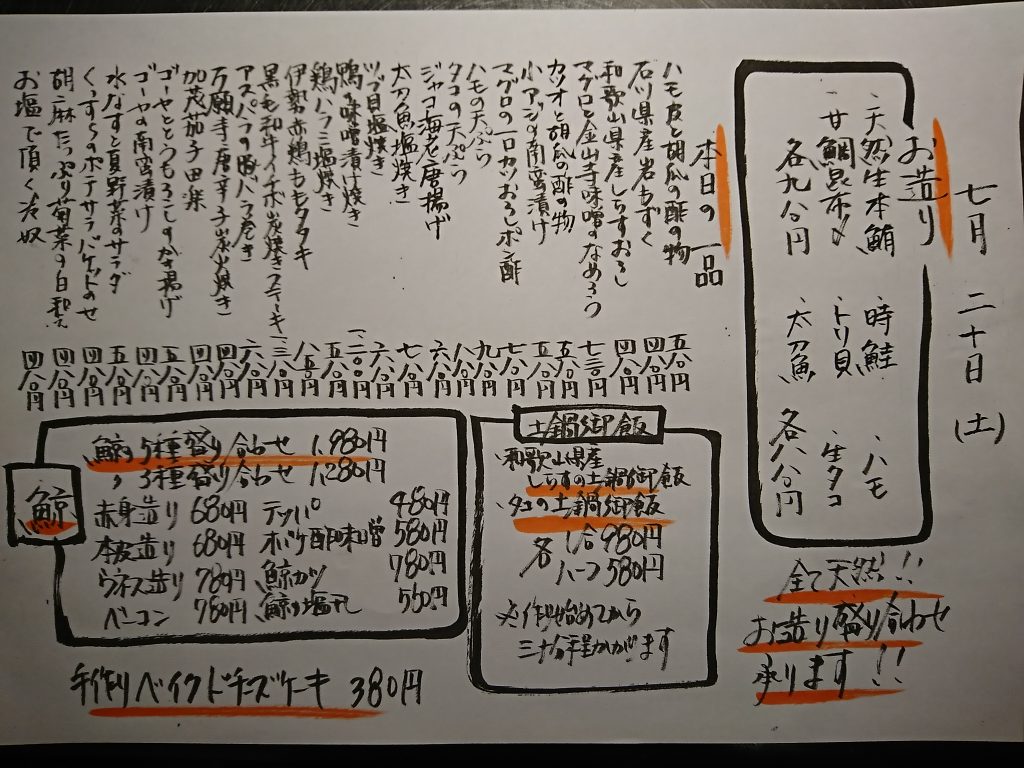 七月 二十日 (土)
お造り
・天然生本鮪 ・時鮭 ・ハモ
・サ鯛昆布〆 ・トリ貝 ・生タコ
各九八〇円 太刀魚 各八八〇円
全て天然!!
お造り盛り合わせ
承ります!!
本日の一品
ハモ皮と胡瓜の酢の物 五八〇円
石川県産岩もずく 四八〇円
和歌山県産しらすおろし 四八〇円
マグロと金山寺味噌のなめろう 七三〇円
カツオと胡瓜の酢の物 五八〇円
小アジの南蛮漬け 五八〇円
マグロの一口カツおろしポン酢 七八〇円
ハモの天ぷら 九八〇円
タコの天ぷら 八八〇円
ジャコ海老唐揚げ 六八〇円
太刀魚塩焼き 七八〇円
ツブ貝塩焼き 六八〇円
鴨の味噌漬け焼き 一二〇〇円
鶏ハラミ塩焼き 五八〇円
伊勢赤鶏ももタタキ 八五〇円
黒毛和牛イチボ炭焼きステーキ 一三八〇円
アスパラの豚バラ巻き 六八〇円
万願寺唐辛子炭火焼き 四八〇円
加茂茄子田楽 四八〇円
ゴーヤととうもろこしのかき揚げ 五八〇円
ゴーヤの南蛮漬け 四八〇円
水なすと夏野菜のサラダ 五八〇円
くんすくのポテサラバゲットのせ 四八〇円
胡麻たっぷり菊菜の白和え 四八〇円
お塩で頂く冷奴 四八〇円
土鍋御飯
・和歌山県産
しらすの土鍋御飯
・タコの土鍋御飯
各 一合 980円
ハーフ 580円
※作り始めてから
三十分程かかります
鯨
鯨5種盛り合わせ 1,980円
〃 3種盛り合わせ 1,280円
赤身造り 680円 テッパ 480円
本皮造り 680円 オバケ酢味噌 580円
ウネス造り 780円 鯨カツ 780円
ベーコン 780円 鯨の塩 550円
手作りベイクドチーズケーキ 380円